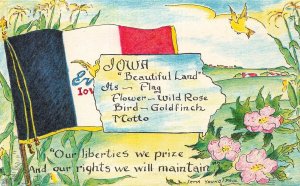 Iow
IOWA
"Beautiful Land"
Its — Flag
Flower — Wild Rose
Bird — Goldfinch
Motto
"Our liberties we prize
And our rights we will maintain"